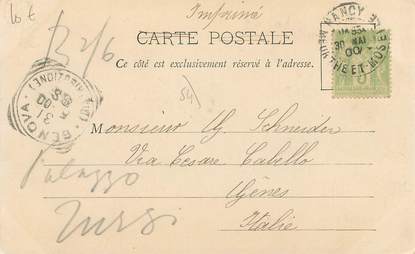 10 €
Imprimé
B 2/6
CARTE POSTALE
Ce côté est exclusivement réservé à l'adresse.
NANCY
30 MAI
00
MEURTHE-ET-MOSELLE
GENOVA
31
5
00
Monsieur Ug. Schneider
Via Cesare Cabella
Gênes
Italie
Palazzo